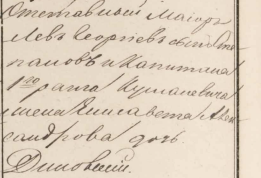 Отставный Маіоръ
Левъ Георгіевъ сынъ Сте
пановъ и Капитана
1го ранга Кумановича
жена Елисавета Алек
сандрова дочь